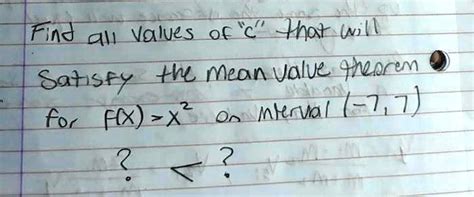 Find all values of "c" that will
Satisfy the mean value theorem
for f(x) = x² on interval (-7, 7)
? < ?